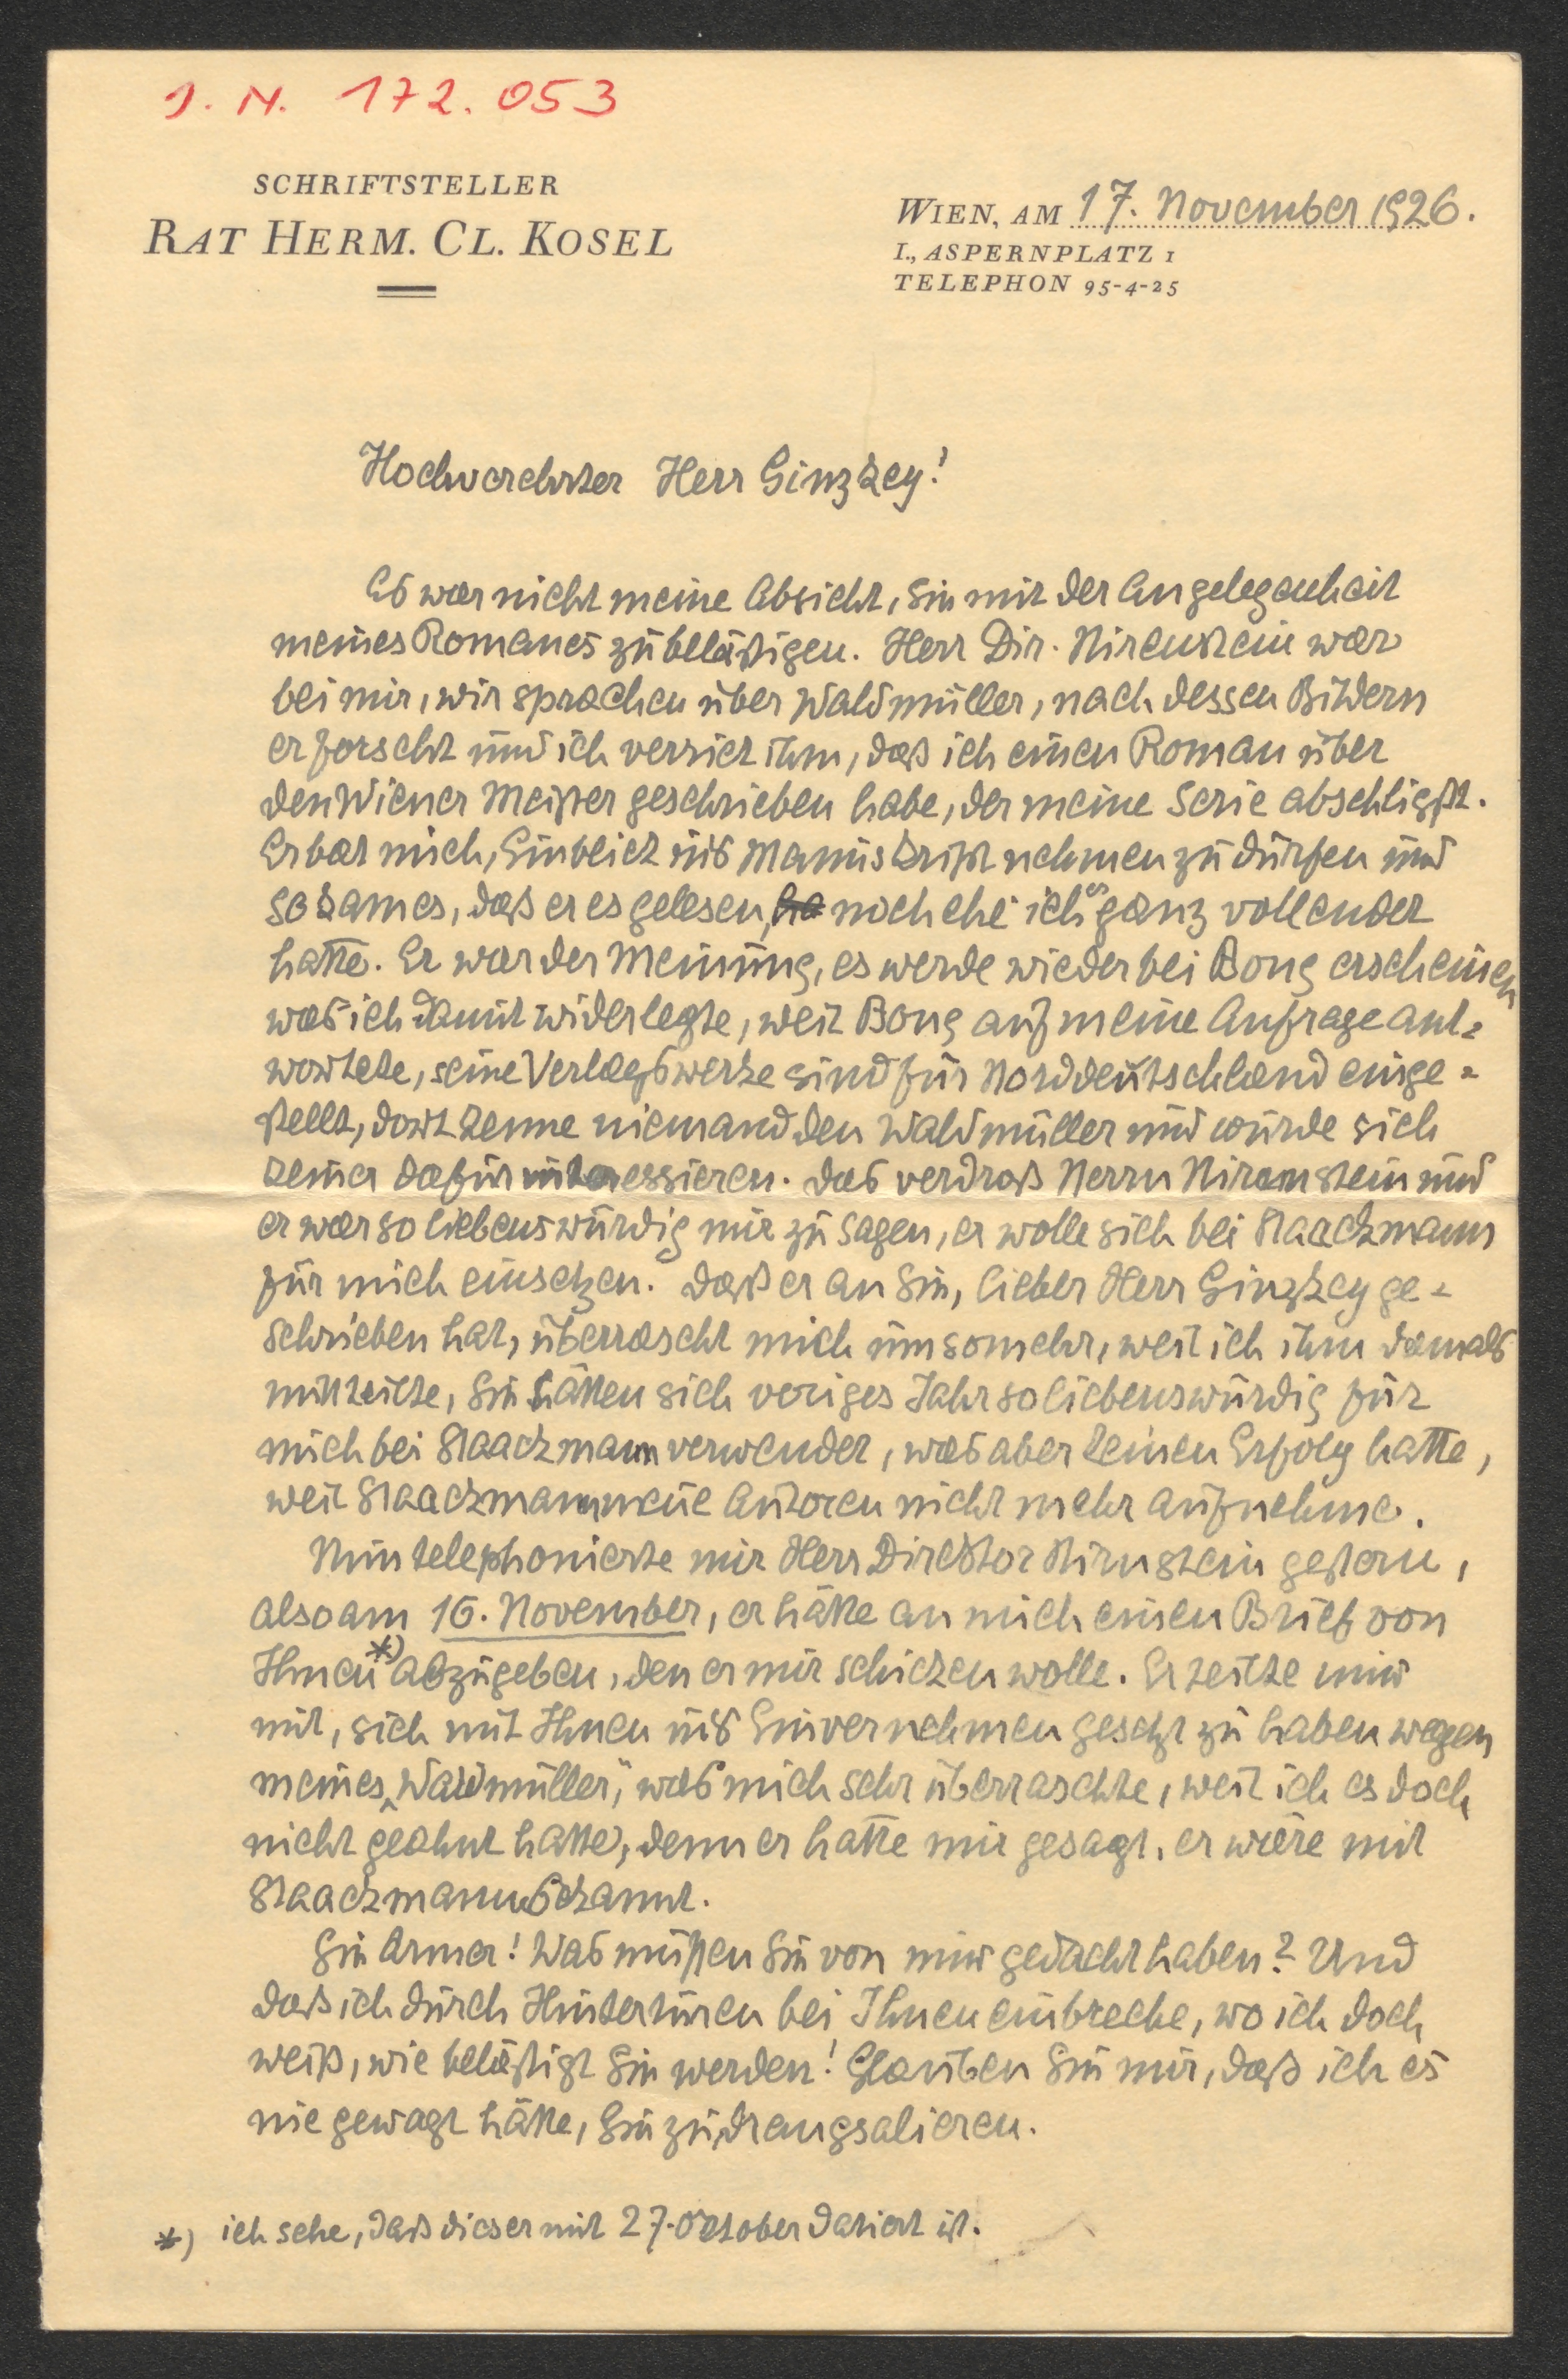 J. N. 172.053
SCHRIFTSTELLER
RAT HERM. CL. KOSEL
WIEN, AM 17. November 1926.
I., ASPERNPLATZ 1
TELEPHON 95-4-25
Hochverehrter Herr Ginzkey!
Es war nicht meine Absicht, Sie mit der Angelegenheit
meines Romanes zu belästigen. Herr Dir. Nirenstein war
bei mir, wir sprachen über Waldmüller, nach dessen Bildern
er forscht und ich verriet ihm, daß ich einen Roman über
den Wiener Meister geschrieben habe, der meine Serie abschließt.
Er bat mich, Einblick ins Manuskript nehmen zu dürfen und
so kam es, daß er es gelesen, ha noch ehe ich es ganz vollendet
hatte. Er war der Meinung, es werde wieder bei Bong erscheinen
was ich damit widerlegte, weil Bong auf meine Anfrage ant-
wortete, seine Verlagswerke sind für Norddeutschland einge-
stellt, dort kenne niemand den Waldmüller und würde sich
keiner dafür interessieren. Das verdroß Herrn Nirenstein und
er war so liebenswürdig mir zu sagen, er wolle sich bei Staackmann
für mich einsetzen. Daß er an Sie, lieber Herr Ginzkey ge-
schrieben hat, überrascht mich umsomehr, weil ich ihm damals
mitteilte, Sie hätten sich voriges Jahr so liebenswürdig für
mich bei Staackmann verwendet, was aber keinen Erfolg hatte,
weil Staackmann neue Autoren nicht mehr aufnehme.
Nun telephonierte mir Herr Direktor Nirnstein gestern,
also am 16. November, er hätte an mich einen Brief von
Ihnen *) abzugeben, den er mir schicken wolle. Er teilte mir
mit, sich mit Ihnen ins Einvernehmen gesetzt zu haben wegen
meines "Waldmüller", was mich sehr überraschte, weil ich es doch
nicht geahnt hatte, denn er hatte mir gesagt, er wäre mit
Staackmann bekannt.
Sie Armer! Was müssen Sie von mir gedacht haben? Und
daß ich durch Hintertüren bei Ihnen einbreche, wo ich doch
weiß, wie belästigt Sie werden! Glauben Sie mir, daß ich es
nie gewagt hätte, Sie zu drangsalieren.
*) ich sehe, daß dieser mit 27. Oktober datiert ist.